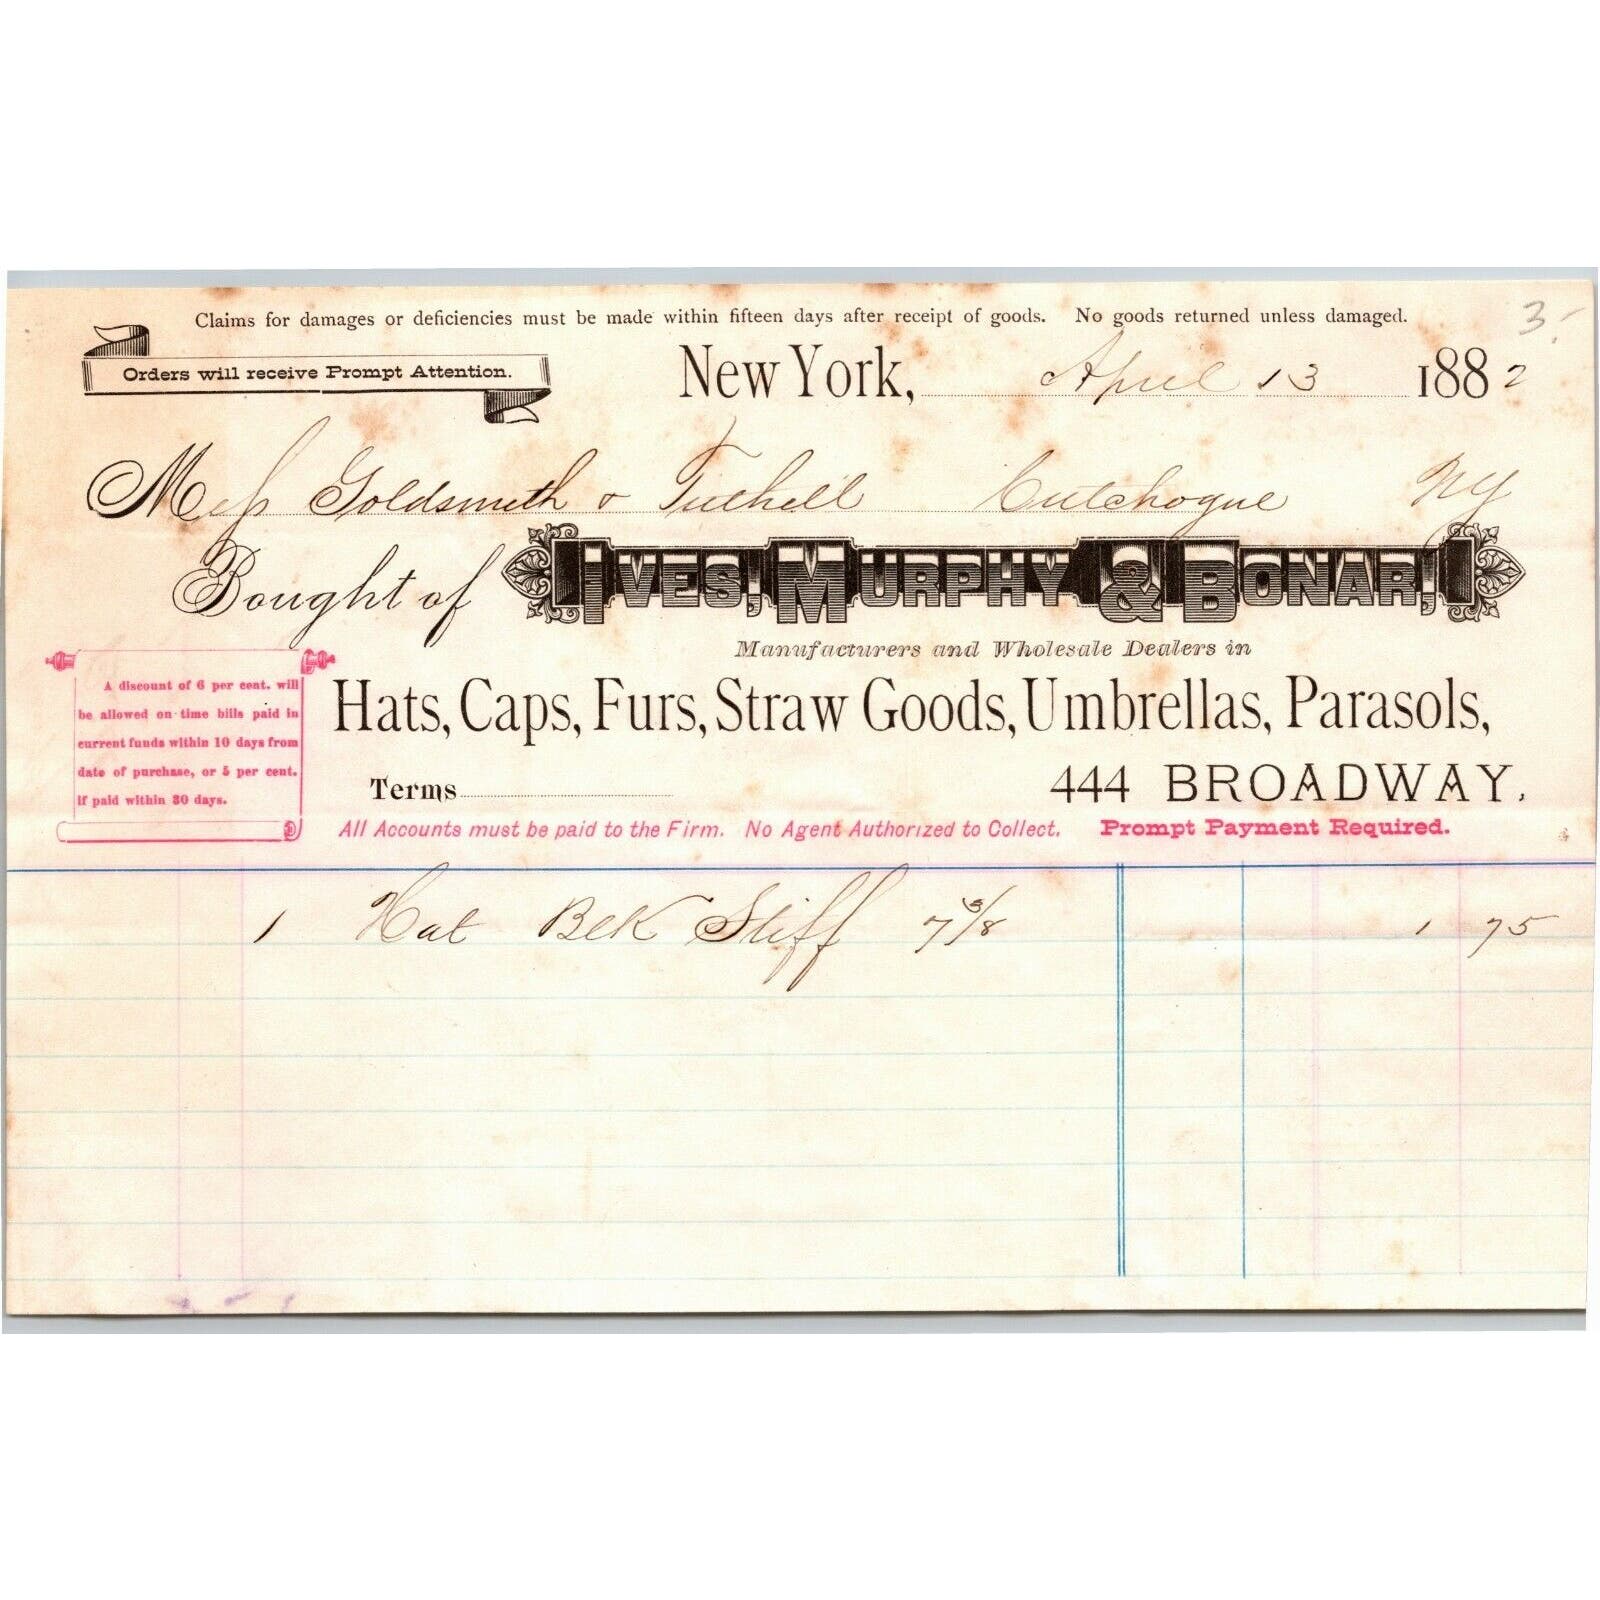 Claims for damages or deficiencies must be made within fifteen days after receipt of goods. No goods returned unless damaged.
3.-
Orders will receive Prompt Attention.
New York, April 13 1882
Mess Goldsmith & Tuthill Cutchogue NY
Bought of IVES, MURPHY & BONAR,
Manufacturers and Wholesale Dealers in
Hats, Caps, Furs, Straw Goods, Umbrellas, Parasols,
A discount of 6 per cent. will
be allowed on time bills paid in
current funds within 10 days from
date of purchase, or 5 per cent.
if paid within 30 days.
Terms
444 BROADWAY.
All Accounts must be paid to the Firm. No Agent Authorized to Collect. Prompt Payment Required.
1 Hat Blk Stiff 7 3/8 1 75